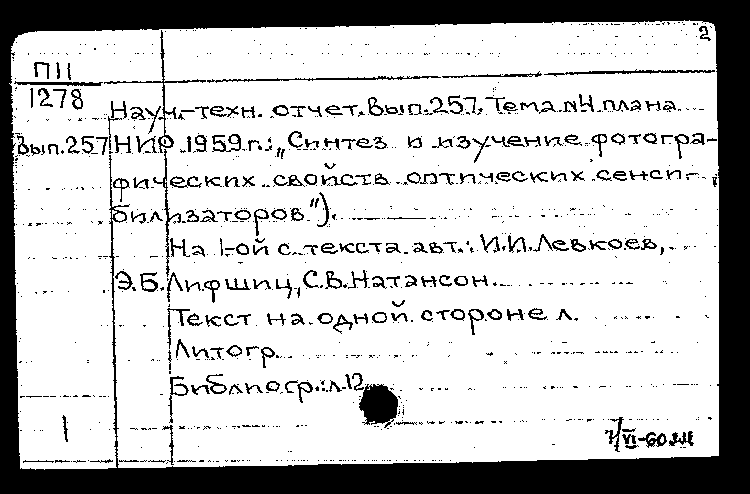 2
П11
1278
Науч.-техн. отчет. Вып.257. Тема №4 плана
Вып.257 НИР 1959 г.: „Синтез и изучение фотогра-
фических свойств оптических сенси-
билизаторов").
На 1-ой с. текста авт.: И.И. Левкоев,
Э.Б. Лифшиц, С.В. Натансон.
Текст на одной стороне л.
Литогр.
Библиогр.: л.12
1
7/VI-60